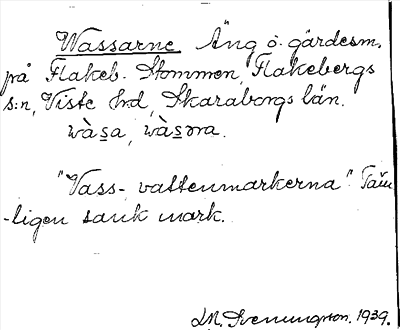 Wassarne. Äng o. gärdesm.
på Flakeb. Stommen, Flakebergs
s:n, Viste hrd, Skaraborgs län.
wàs̲a, wàs̲ɔna.
"Vass-, vattenmarkerna". Täm-
-ligen sank mark.
Svenungson. 1939.